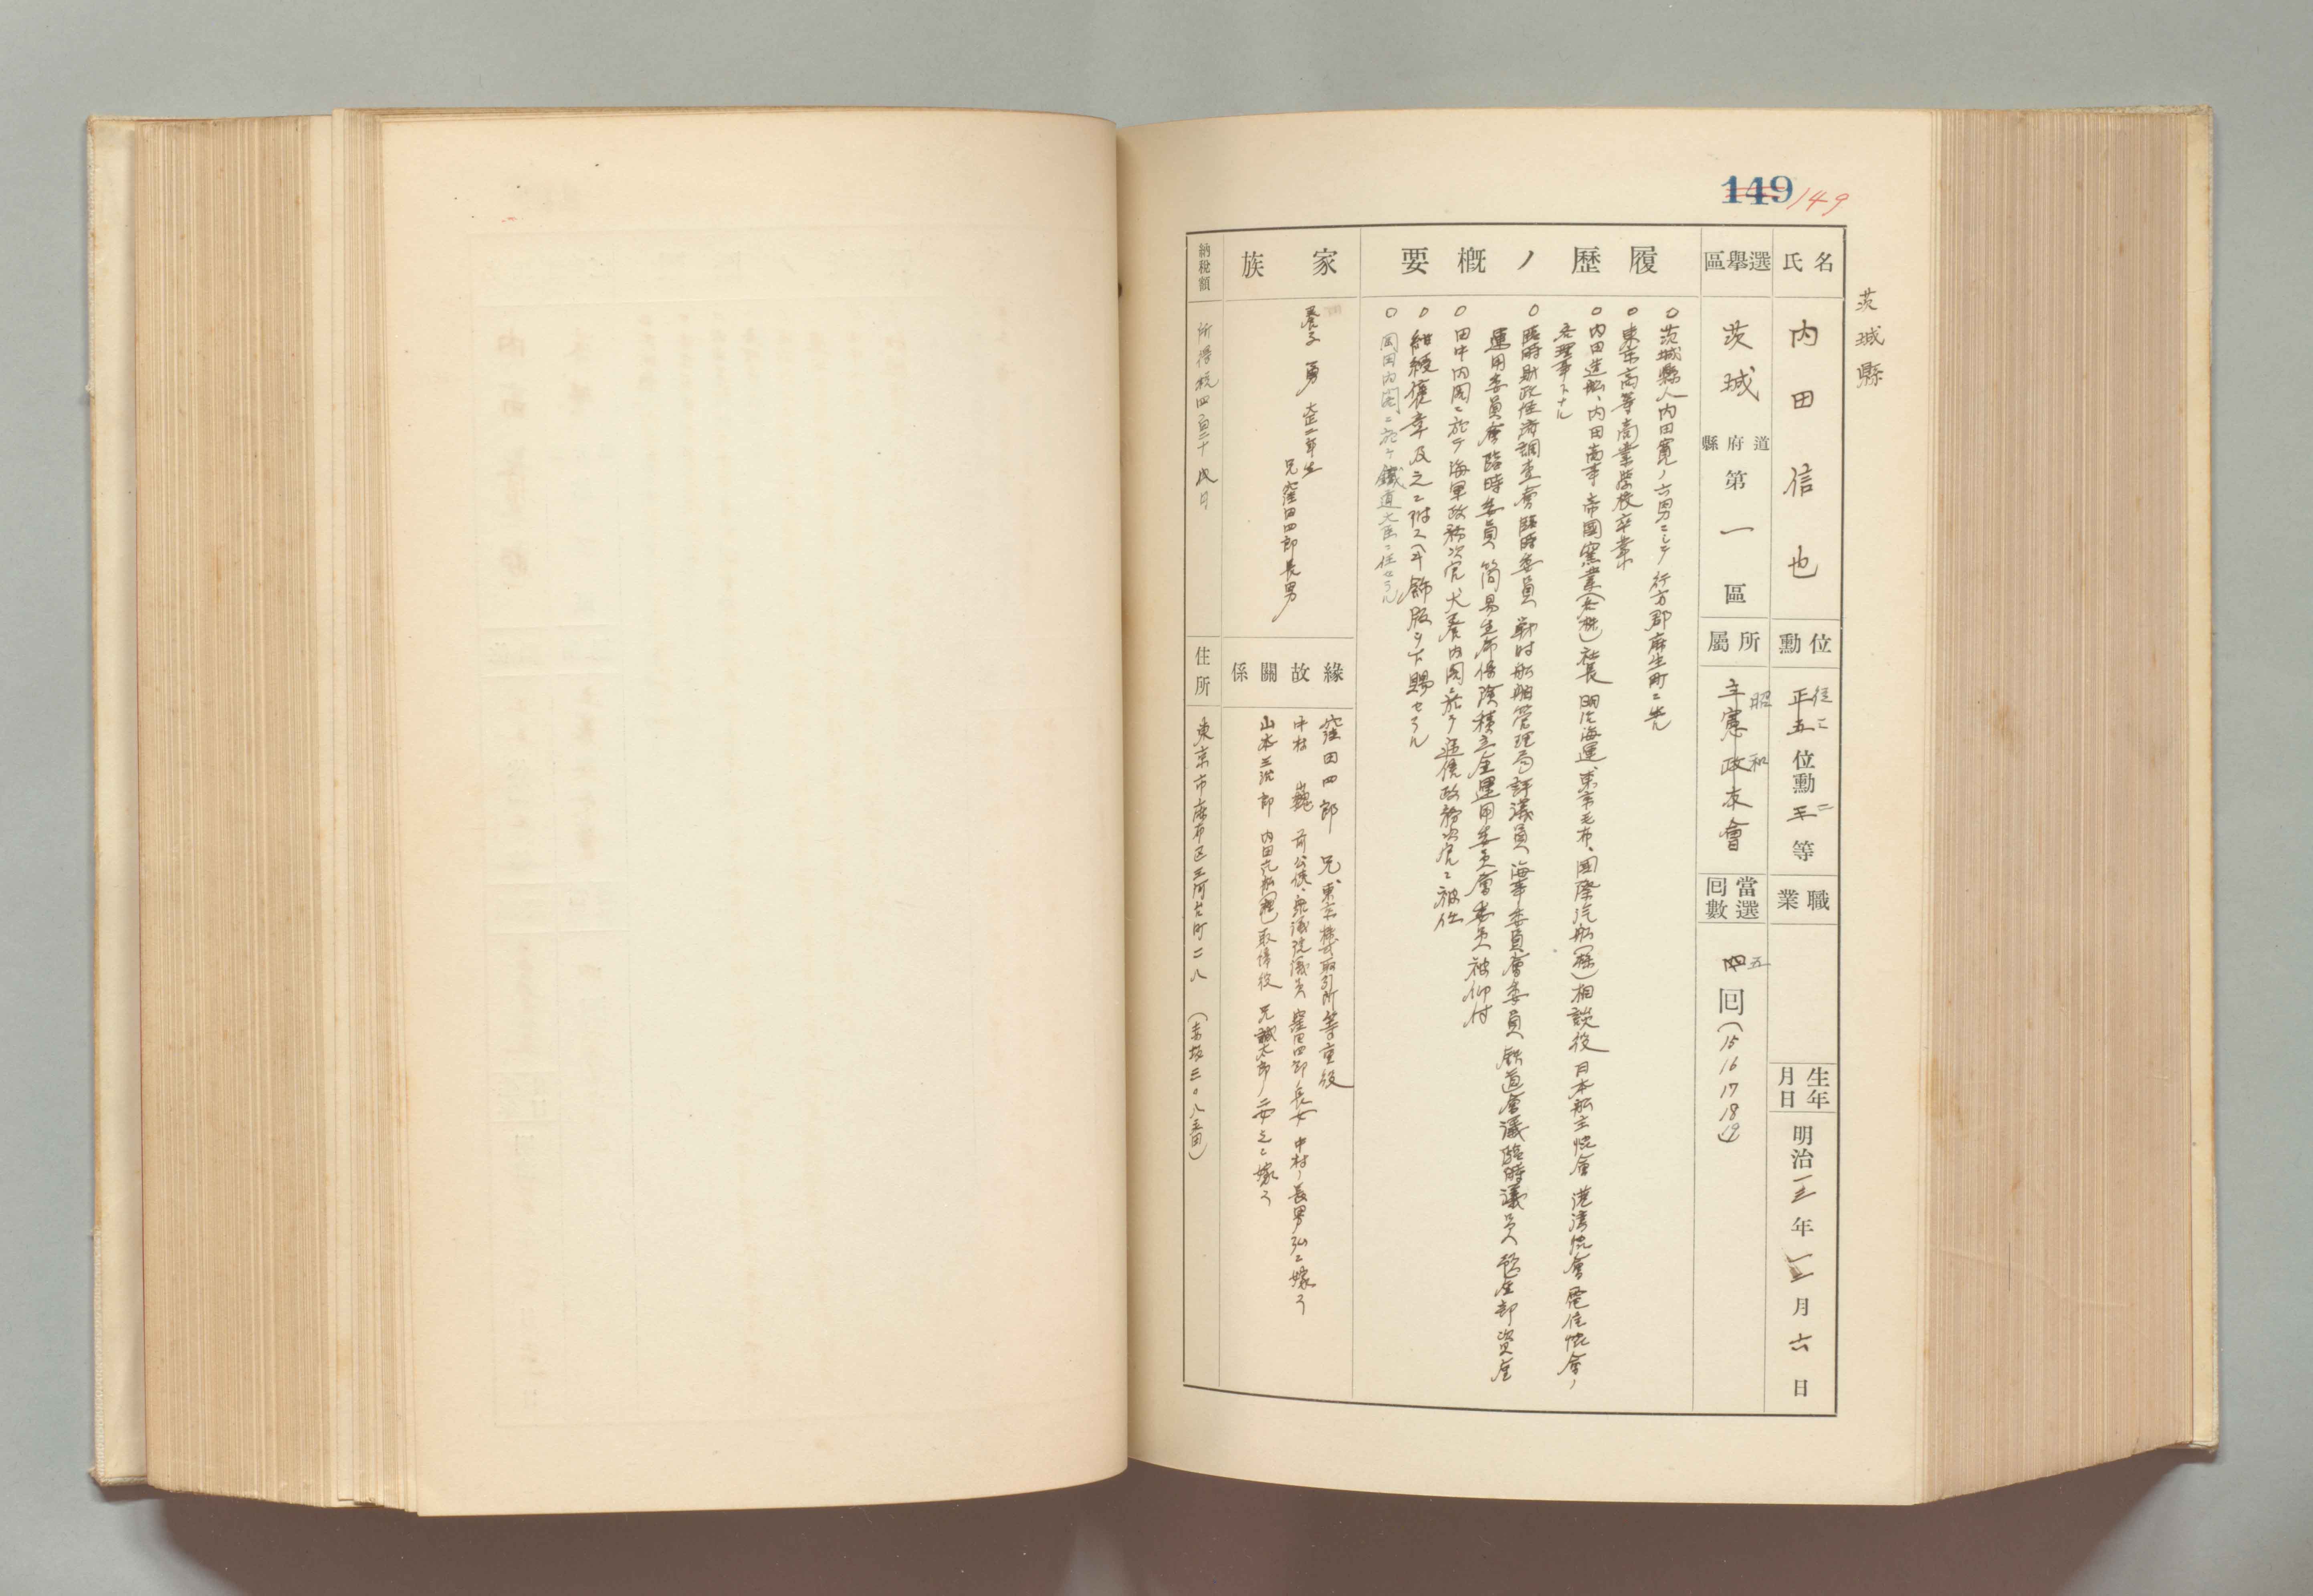 149 149
茨城縣
氏名
内田信也
位勲
正五位勲三等
従二
二
職業
生年月日
明治一三年一二月六日
選擧區
茨城
道府縣
第一區
所屬
立憲政友會
昭和
當選回數
四回(15 16 17 18 19)
五
履歷ノ概要
○茨城縣人内田寛ノ六男ニシテ行方郡麻生町ニ生ル
○東京高等商業學校卒業
○内田造船、内田商事、帝國窯業(各株)社長 明治海運、東京毛布、國際汽船(株)相談役 日本船主協會 港湾協會 電信協會ノ
各理事トナル
○臨時財政経済調査會臨時委員、戦時船舶管理局評議員、海事委員會委員、鉄道會議臨時議員、預金部資金
運用委員會臨時委員、簡易生命保険積立金運用委員會委員被仰付
○田中内閣ニ於テ海軍政務次官、犬養内閣ニ於テ逓信政務次官ニ被任
○紺綬褒章及之ニ附スヘキ飾版ヲ下賜セラル
○岡田内閣ニ於テ鐵道大臣ニ任セラル
家族
養子 勇 大正二年生
兄窪田四郎長男
緣故關係
窪田四郎 兄、東京株式取引所等重役
中村 巍 前公使、衆議院議員 窪田四郎長女中村ノ長男弘ニ嫁ス
山本三治郎 内田汽船 取締役 兄誠太郎ノ二女之ニ嫁ス
納稅額
所得税四百二十
住所
東京市麻布區三河台町二八 (赤坂三〇八)